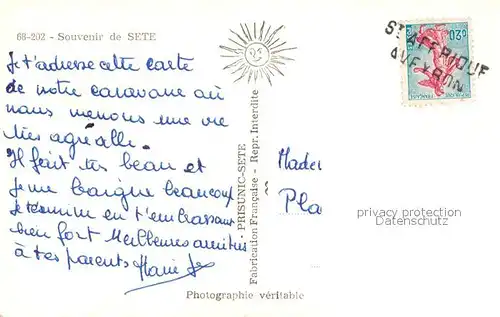 68-202 - Souvenir de SETE
Je t'adresse cette carte
de notre caravane où
nous menons une vie
très agréable.
Il fait très beau et
je me baigne beaucoup
Je termine en t'embrassant
bien fort Meilleures amitiés
à tes parents Marie
PRISUNIC-SETE
Fabrication Française - Repr. Interdite
Photographie véritable
ST AFFRIQUE
AVEYRON
0,20
Madem
Pla
privacy protection
Datenschutz